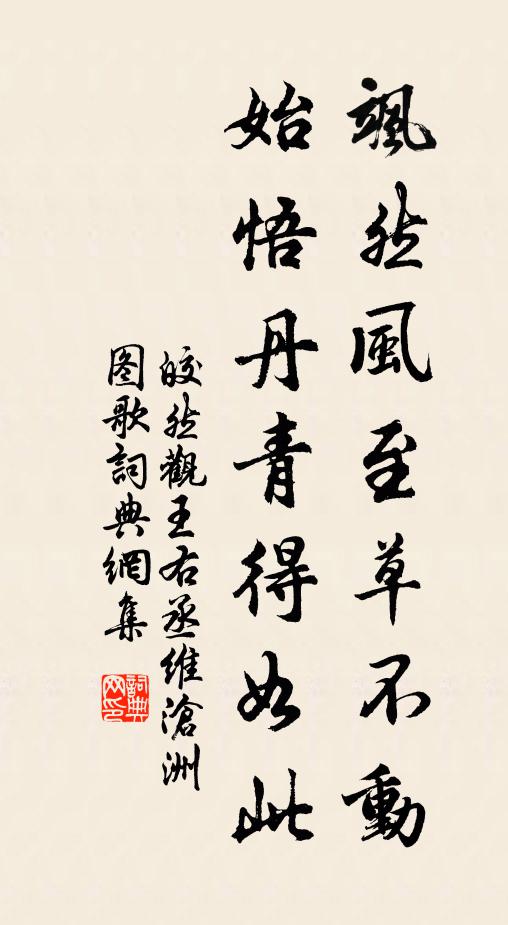 颯然風至草不動
始悟丹青得如此
皎然觀王右丞維滄洲
圖歌詞典網集
詞典
网印